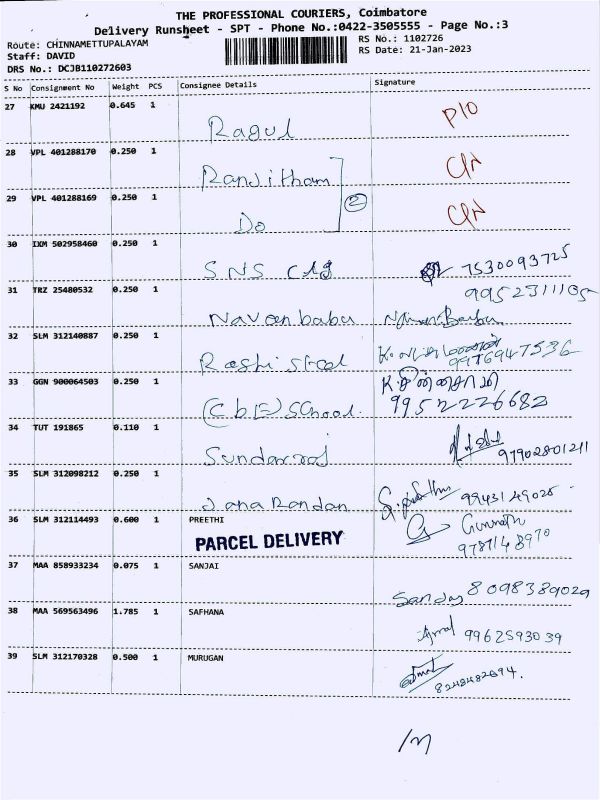 THE PROFESSIONAL COURIERS, Coimbatore
Delivery Runsheet - SPT - Phone No.:0422-3505555 - Page No.:3
Route: CHINNAMETTUPALAYAM RS No.: 1102726
Staff: DAVID RS Date: 21-Jan-2023
DRS No.: DCJB110272603
S No Consignment No Weight PCS Consignee Details Signature
27 KMU 2421192 0.645 1
Ragul P10
28 VPL 401288170 0.250 1
Ranjitham
29 VPL 401288169 0.250 1 2
Do
30 IXM 502958460 0.250 1
SNS Clg 7530093725
31 TRZ 25480532 0.250 1 9952311105
Navaenbabu
32 SLM 312140887 0.250 1
Rashi steel 9976947536
33 GGN 900064503 0.250 1
(CbE) School 9952226682
34 TUT 191865 0.110 1
Sundarraj 97902801211
35 SLM 312098212 0.250 1
Janarandan 9943149025
36 SLM 312114493 0.600 1 PREETHI
PARCEL DELIVERY 9787148970
37 MAA 858933234 0.075 1 SANJAI
Sanday 8098389029
38 MAA 569563496 1.785 1 SAFHANA
Ajmal 9962593039
39 SLM 312170328 0.500 1 MURUGAN
8248482694.